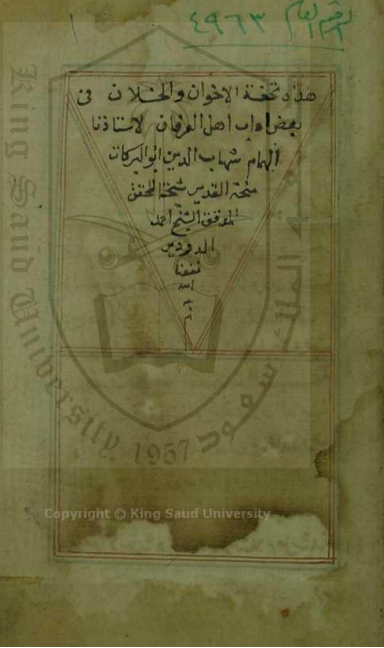 الرقم العام ٤٩٦٣
١
هذه تحفة الاخوان والخلان فى
بعض اداب اهل العرفان لاستاذنا
الهمام شهاب الدين ابو البركات
منحة القدير شيخة المحقق
الموفق الشيخ احمد
الدردير
نفعنا
الله
به
King Saud University
1957
جامعة الملك سعود
Copyright © King Saud University